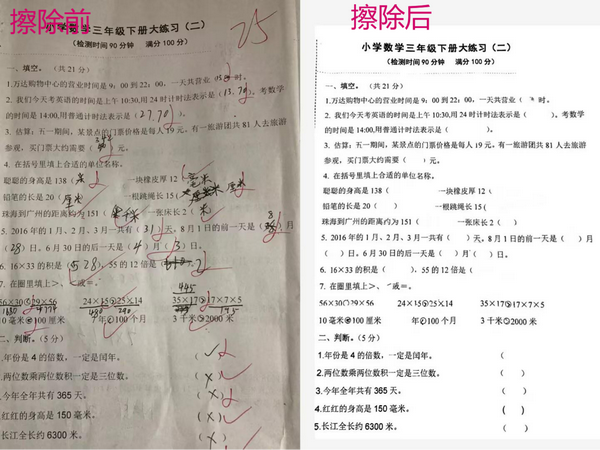 擦除前
小学数学三年级下册大练习（二）
（检测时间90分钟 满分100分）
一、填空。（共21分）
1.万达购物中心的营业时间是9：00到22：00，一天共营业（ ）时。
2. 我们今天考英语的时间是上午10:30,用24时计时法表示是（13.70）。考数学
的时间是14:00,用普通计时法表示是（27.70）。
3. 估算：五一期间，某景点的门票价格是每人19元。有一旅游团共81人去旅游
参观，买门票大约需要（ ）元。
4. 在括号里填上合适的单位名称。
聪聪的身高是138（米 一块橡皮厚12（毫米
铅笔的长是20（厘米 一根跳绳长15（厘米
珠海到广州的距离约为151（ 一张床长2（米）
5. 2016年的1月、2月、3月一共有（31）天。8月1日的前一天是（8）月
（28）日。6月30日的后一天是（4）月（3）日。
6. 16×33的积是（528），55的12倍是（ ）
7. 在圈里填上>、<或=。
56×30○29×56 24×15○25×14 35×17○17×7×5
1680 480 445
10毫米○100厘米 年○100个月 3千米○2000米
二、判断。（5分）
1.年份是4的倍数，一定是闰年。（✓）
2.两位数乘两位数积一定是三位数。（×）
3.今年全年共有365天。（×）
4.红红的身高是150毫米。（×）
5.长江全长约6300米。（✓）
75
擦除后
小学数学三年级下册大练习（二）
（检测时间90分钟 满分100分）
一、填空。（共21分）
1.万达购物中心的营业时间是9：00到22：00，一天共营业（ ）时。
2. 我们今天考英语的时间是上午10:30,用24时计时法表示是（ ）。考数学
的时间是14:00,用普通计时法表示是（ ）。
3. 估算：五一期间，某景点的门票价格是每人19元。有一旅游团共81人去旅游
参观，买门票大约需要（ ）元。
4. 在括号里填上合适的单位名称。
聪聪的身高是138（ 一块橡皮厚12（
铅笔的长是20（ ） 一根跳绳长15（
珠海到广州的距离约为151（ 一张床长2（ ）
5. 2016年的1月、2月、3月一共有（ ）天。8月1日的前一天是（ ）月
（ ）日。6月30日的后一天是（ ）月（ ）日。
6. 16×33的积是（ ），55的12倍是（
7. 在圈里填上>、<或=。
56×30○29×56 24×15○25×14 35×17○17×7×5
10毫米○100厘米 年○100个月 3千米○2000米
二、判断。（5分）
1.年份是4的倍数，一定是闰年。（ ）
2.两位数乘两位数积一定是三位数。（ ）
3.今年全年共有365天。（ ）
4.红红的身高是150毫米。（ ）
5.长江全长约6300米。（ ）